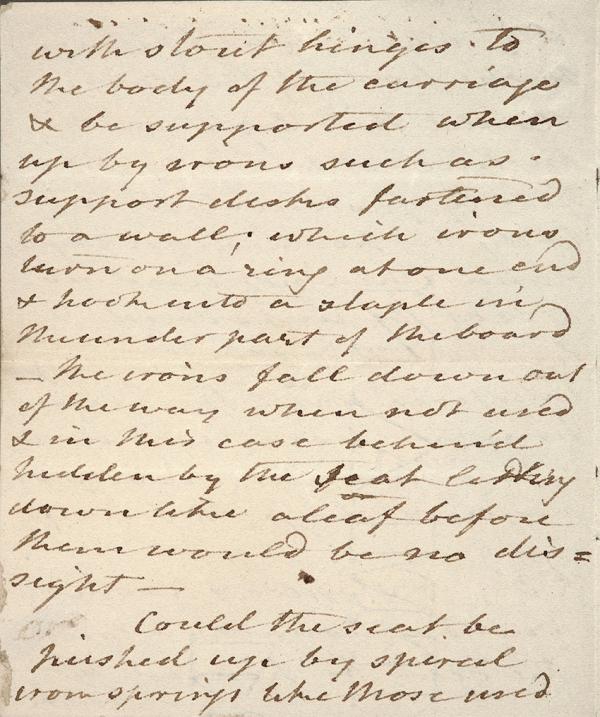 with stout hinges to
the body of the carriage
& be supported when
up by irons such as
support desks fastened
to a wall; which irons
turn on a ring at one end
& hook into a staple in
the under part of the board
— the irons fall down out
of the way when not used
& in this case behind
hidden by the seat
down like a leaf before
them would be no dis=
sight —
Could the seat be
pushed up by spiral
iron springs like those used